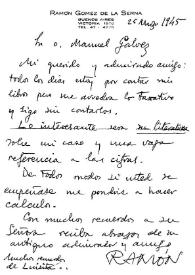 RAMÓN GOMEZ DE LA SERNA
BUENOS AIRES
VICTORIA 1970
26 1945
Sr. D. Manuel Galvez
Mi querido y admirado amigo:
todos los dias estoy por contar mis
libros pero me arredra lo fatidico
y sigo sin contarlos.
Lo interesante sera su literatura
sobre mi caso y una vaga
referencia a las cifras.
De todos modos si usted se
empeñase me pondria a hacer
calculo.
Con muchos recuerdos a su
Señora reciba abrazos de su
antiguo admirador y amigo
RAMÓN
Muchos recuerdos
de Luisita